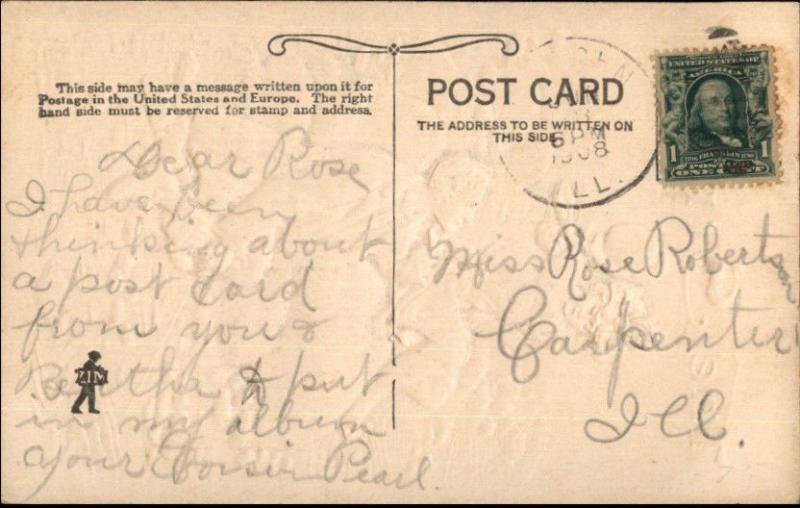 This side may have a message written upon it for
Postage in the United States and Europe. The right
hand side must be reserved for stamp and address.
Dear Rose
I have been
thinking about
a post Card
from you &
Bertha to put
in my album
your Cousin Pearl.
ZIM
POST CARD
THE ADDRESS TO BE WRITTEN ON
THIS SIDE
6 PM
1908
ILL.
UNITED STATES OF
AMERICA
1 FRANKLIN 1
POSTAGE
ONE CENT
Miss Rose Robertson
Carpenter
Ill.